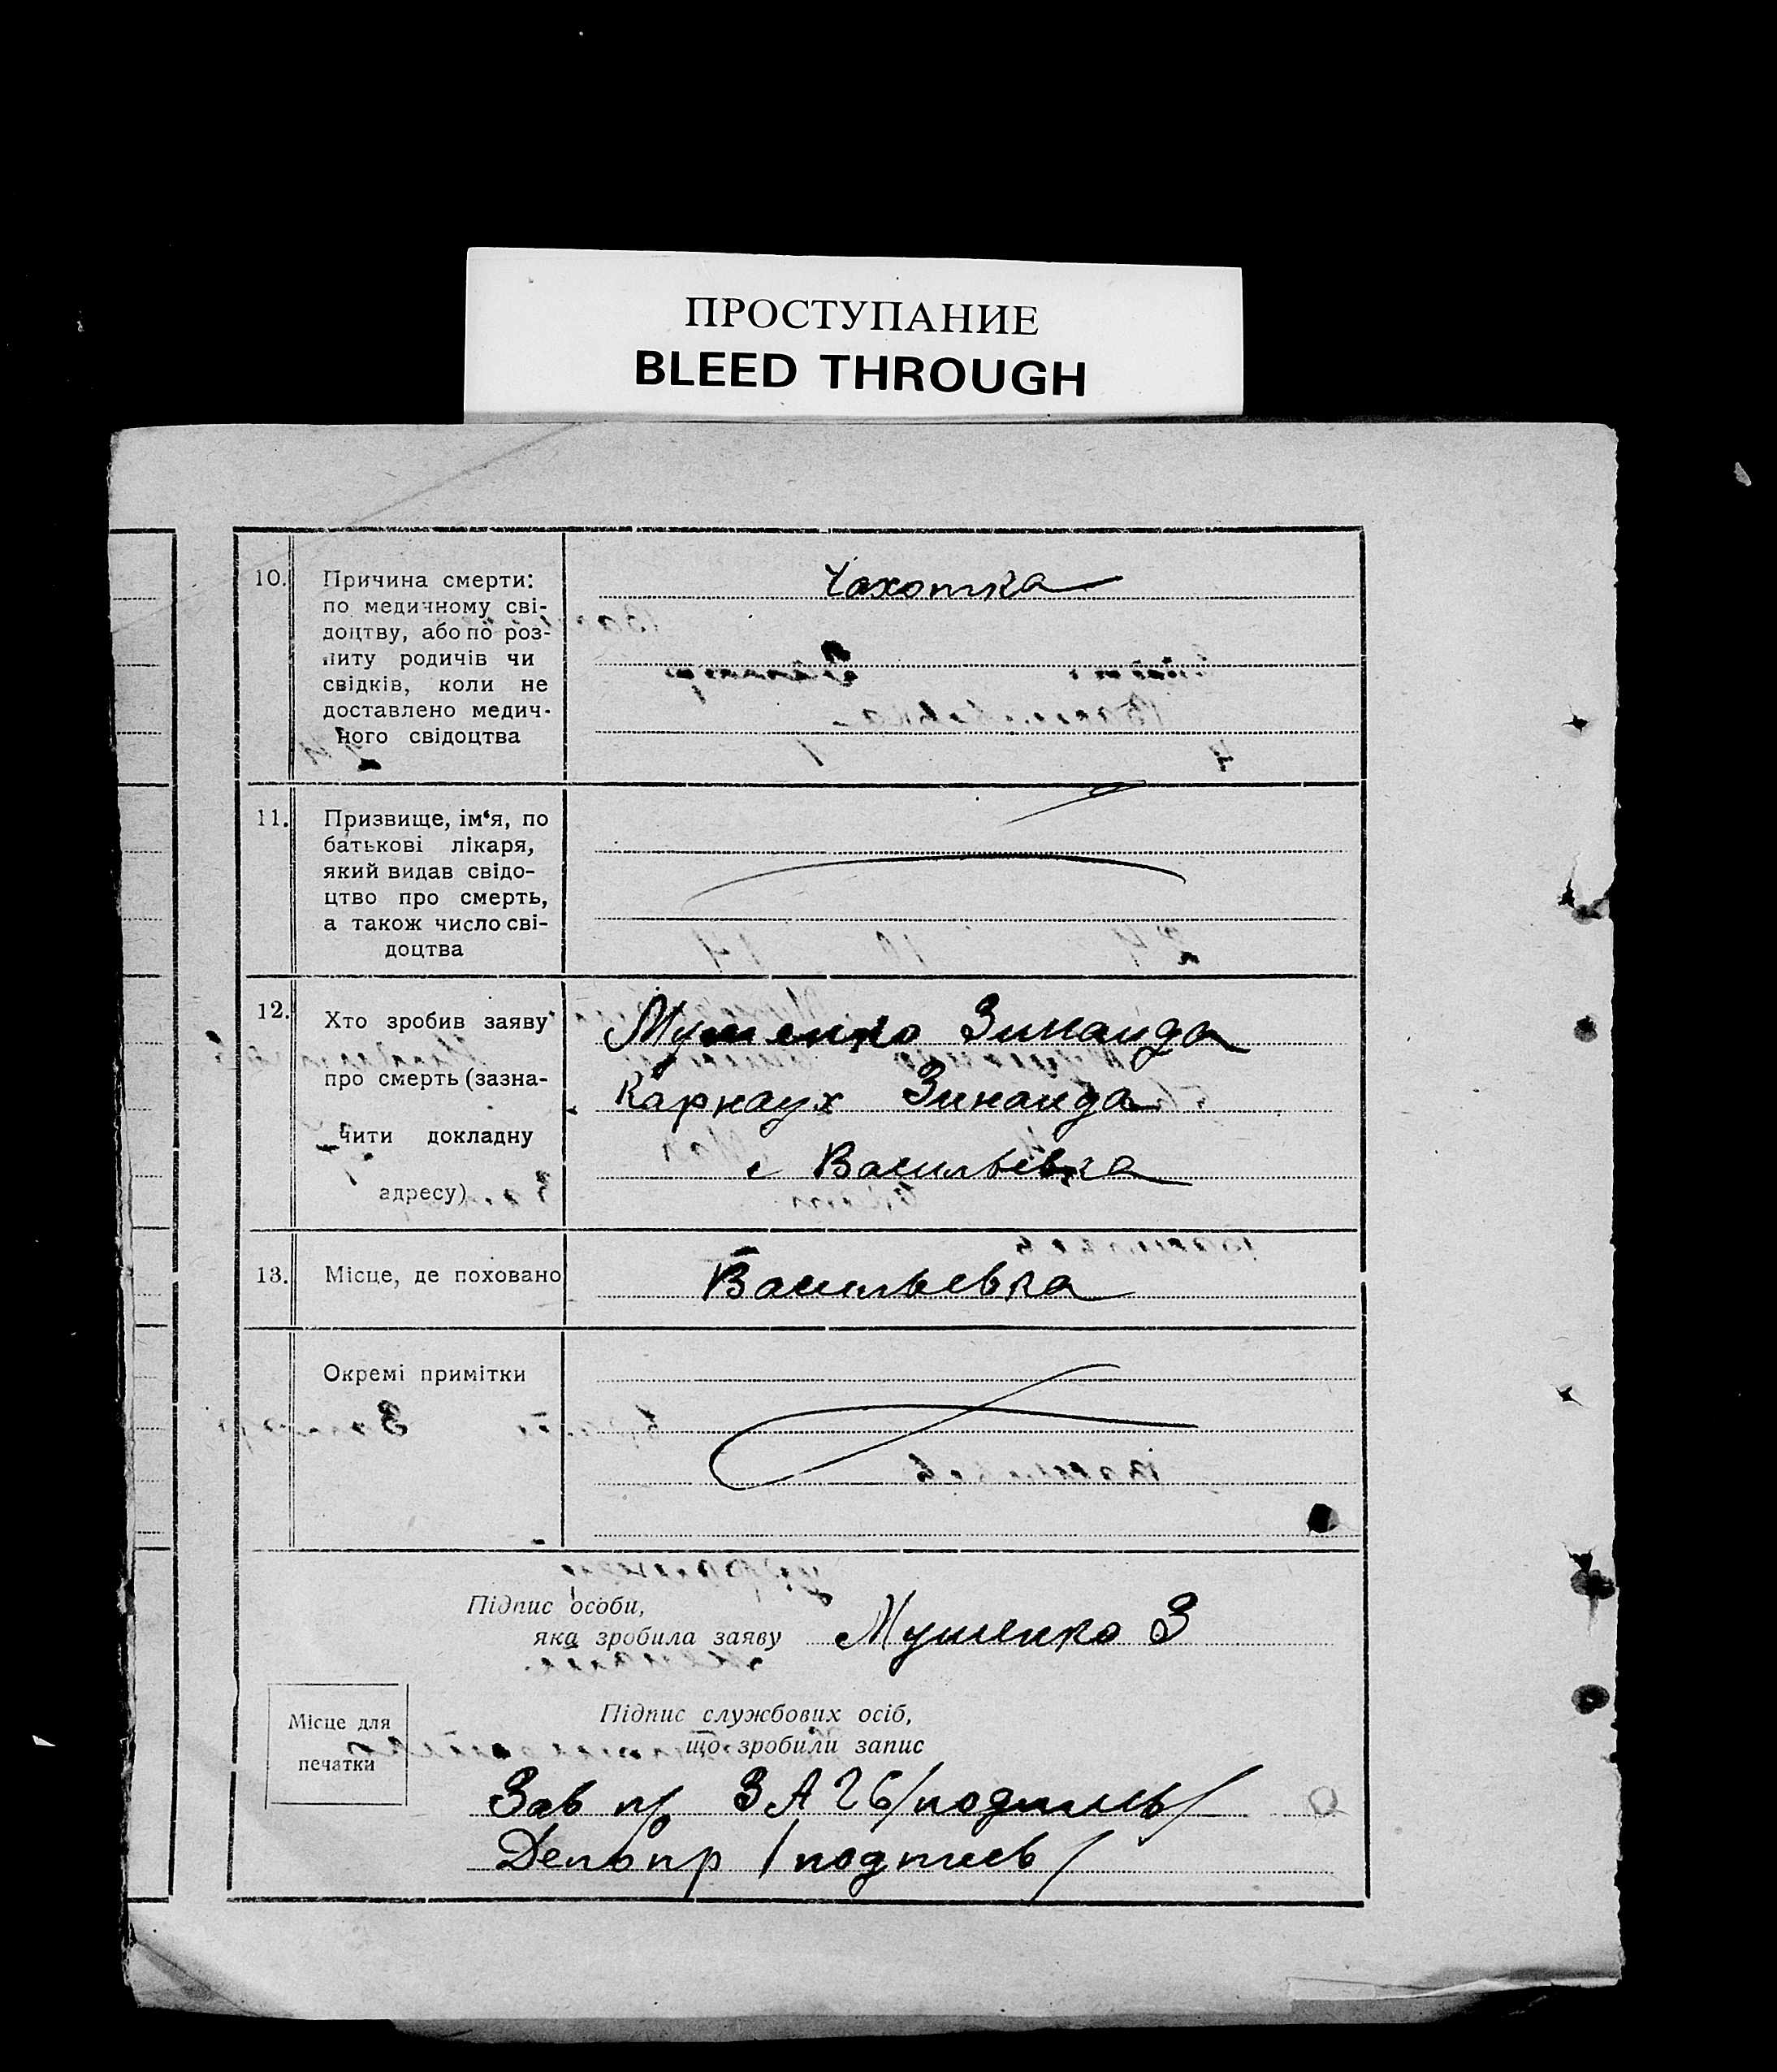 ПРОСТУПАНИЕ
BLEED THROUGH
10. Причина смерти: Чахотка
по медичному сві-
доцтву, або по роз-
питу родичів чи
свідків, коли не
доставлено медич-
ного свідоцтва
11. Призвище, ім‘я, по
батькові лікаря,
який видав свідо-
цтво про смерть,
а також число сві-
доцтва
12. Хто зробив заяву Мушенко Зинаида
про смерть (зазна- Карнаух Зинаида
чити докладну
с Васильевка
адресу)
13. Місце, де поховано Васильевка
Окремі примітки
Підпис особи,
яка зробила заяву Мушенко З
Місце для
печатки
Підпис службових осіб,
що зробили запис
Зав п/о ЗАГС /подпись/
Делопр /подпись/